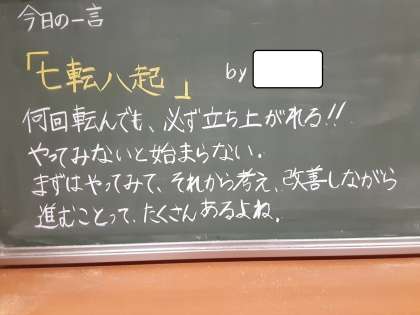 今日の一言
「七転八起」 by
何回転んでも、必ず立ち上がれる!!
やってみないと始まらない。
まずはやってみて、それから考え、改善しながら
進むことって、たくさんあるよね。